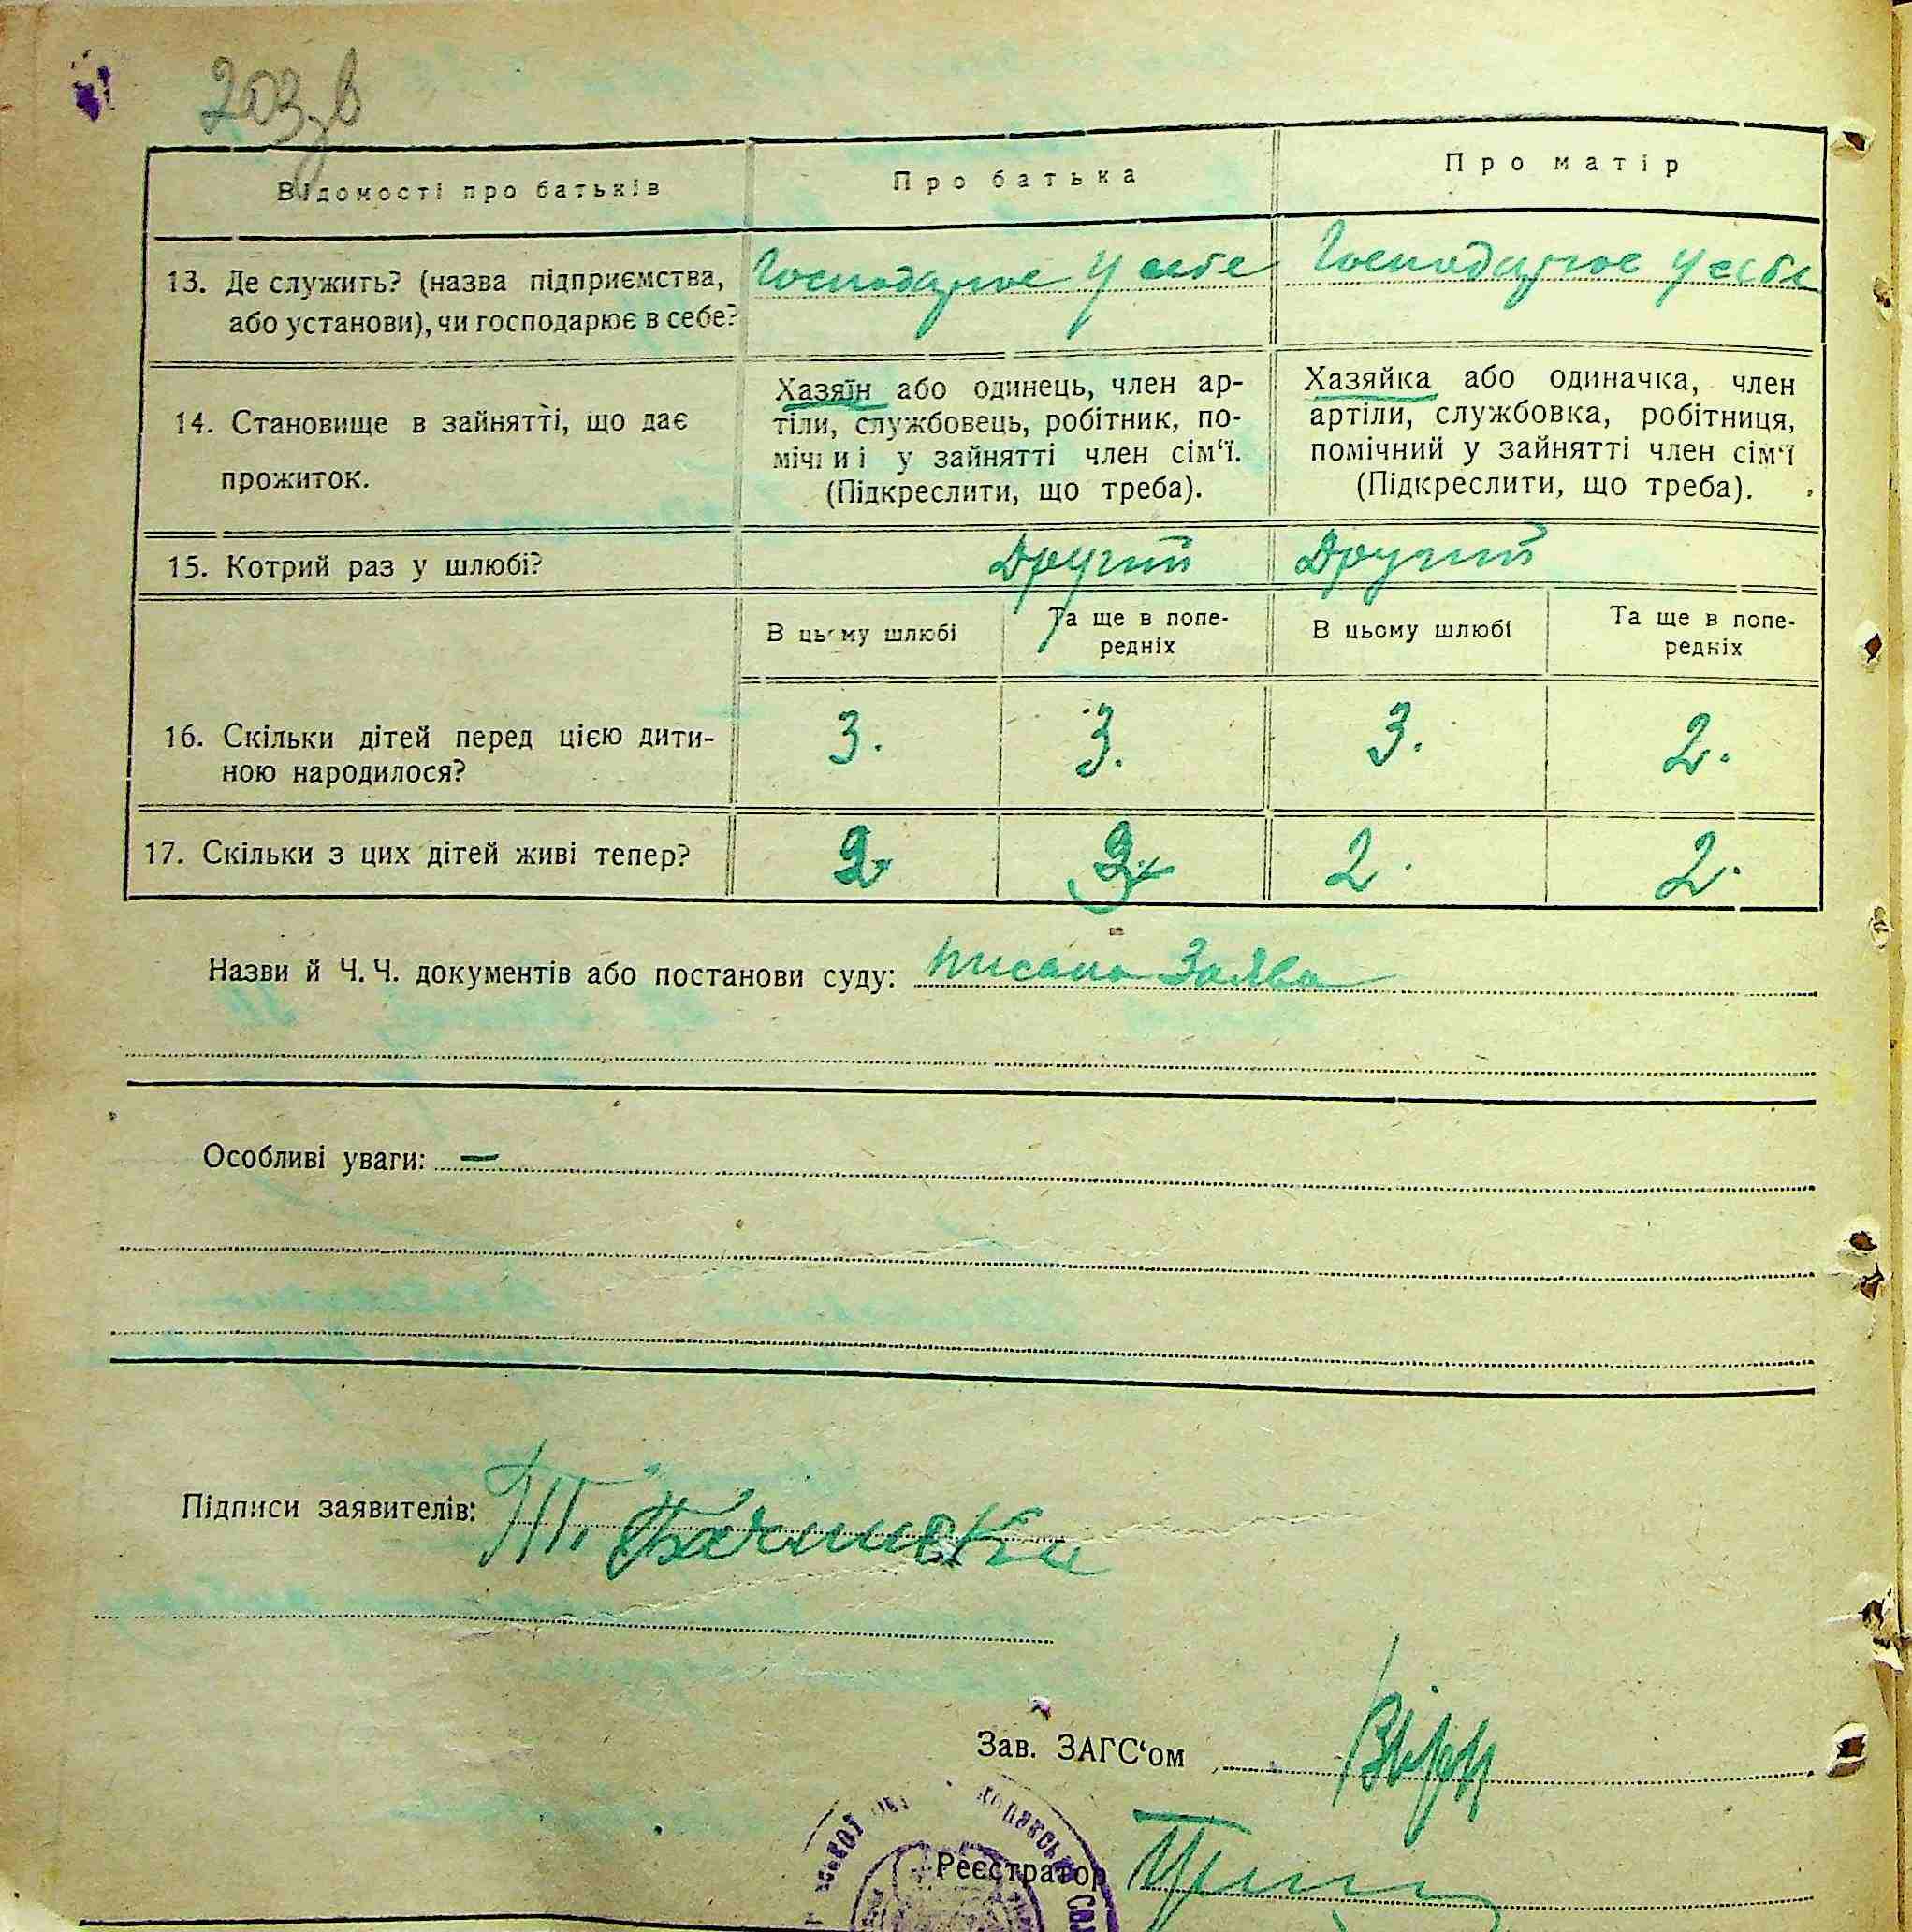 203зв
Відомості про батьків
Про батька
Про матір
13. Де служить? (назва підприємства,
або установи), чи господарює в себе?
Господарює у себе
Господарює у себе
14. Становище в зайнятті, що дає
прожиток.
Хазяїн або одинець, член ар-
тіли, службовець, робітник, по-
мічниі у зайнятті член сім‘ї.
(Підкреслити, що треба).
Хазяйка або одиначка, член
артіли, службовка, робітниця,
помічний у зайнятті член сім‘ї
(Підкреслити, що треба).
15. Котрий раз у шлюбі?
Другий
Другий
В цьому шлюбі
Та ще в попе-
редніх
В цьому шлюбі
Та ще в попе-
редніх
16. Скільки дітей перед цією дити-
ною народилося?
3.
3.
3.
2.
17. Скільки з цих дітей живі тепер?
2
2.
2.
Назви й Ч. Ч. документів або постанови суду: писана Заява
Особливі уваги: —
Підписи заявителів:
Зав. ЗАГС‘ом
Реєстратор